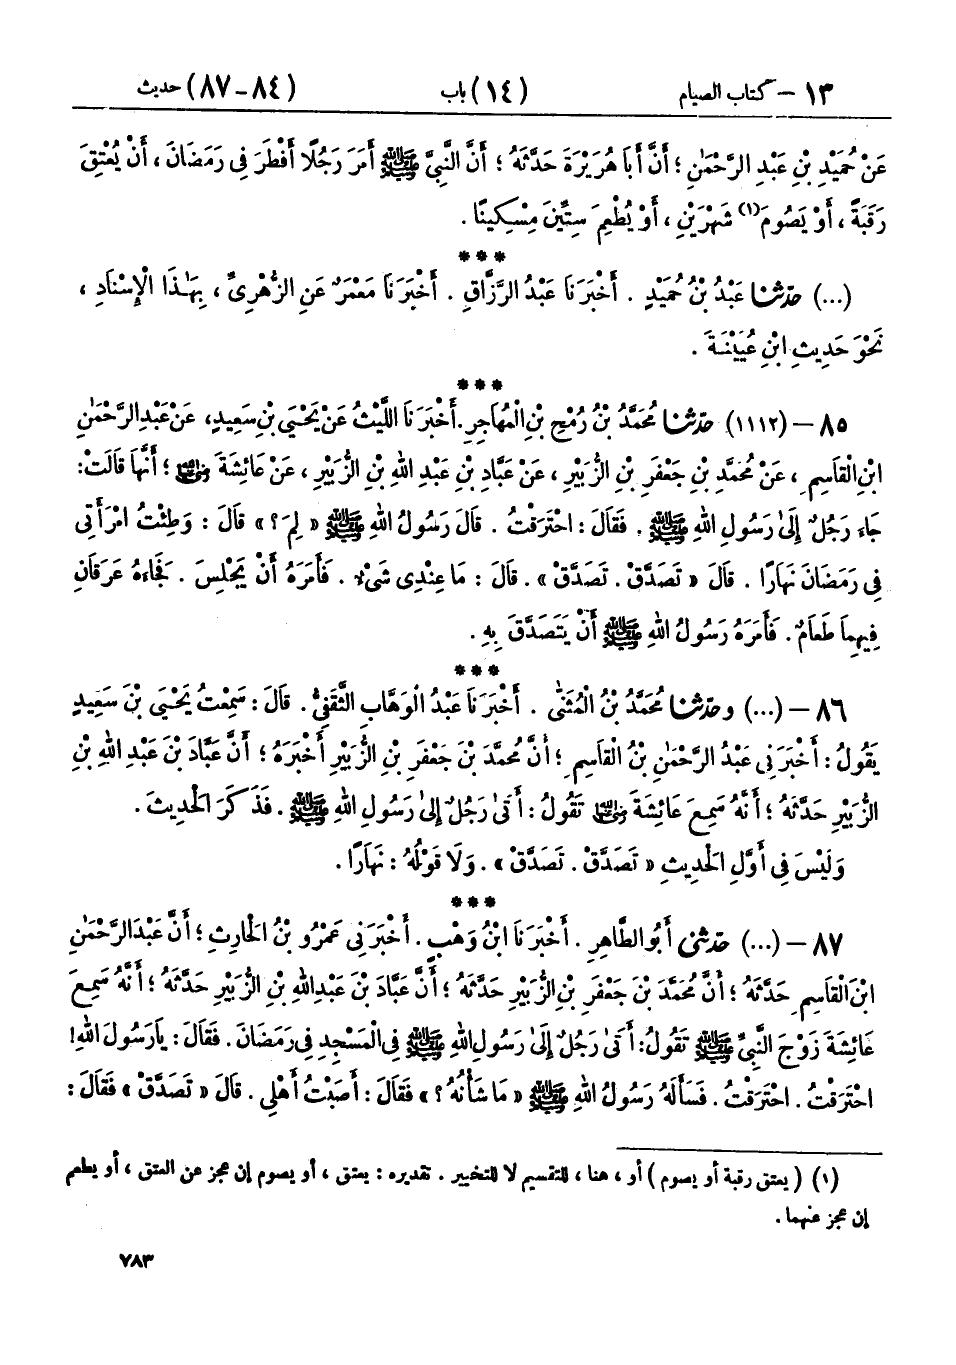 ١٣ – كتاب الصيام (١٤) باب (٨٤-٨٧) حديث
عَنْ حُمَيْدِ بْنِ عَبْدِ الرَّحْمَٰنِ ؛ أَنَّ أَبَا هُرَيْرَةَ حَدَّثَهُ ؛ أَنَّ النَّبِيَّ ﷺ أَمَرَ رَجُلًا أَفْطَرَ فِي رَمَضَانَ ، أَنْ يُعْتِقَ
رَقَبَةً ، أَوْ يَصُومَ(١) شَهْرَيْنِ ، أَوْ يُطْعِمَ سِتِّينَ مِسْكِينًا .
***
(...) حَدَّثَنَا عَبْدُ بْنُ حُمَيْدٍ . أَخْبَرَنَا عَبْدُ الرَّزَّاقِ . أَخْبَرَنَا مَعْمَرٌ عَنِ الزُّهْرِيِّ ، بِهَٰذَا الْإِسْنَادِ ،
نَحْوَ حَدِيثِ ابْنِ عُيَيْنَةَ .
***
٨٥ – (١١١٢) حَدَّثَنَا مُحَمَّدُ بْنُ رُمْحِ بْنِ الْمُهَاجِرِ . أَخْبَرَنَا اللَّيْثُ عَنْ يَحْيَى بْنِ سَعِيدٍ، عَنْ عَبْدِ الرَّحْمَٰنِ
ابْنِ الْقَاسِمِ ، عَنْ مُحَمَّدِ بْنِ جَعْفَرِ بْنِ الزُّبَيْرِ ، عَنْ عَبَّادِ بْنِ عَبْدِ اللهِ بْنِ الزُّبَيْرِ ، عَنْ عَائِشَةَ رضي الله عنها ؛ أَنَّهَا قَالَتْ:
جَاءَ رَجُلٌ إِلَىٰ رَسُولِ اللهِ ﷺ . فَقَالَ : احْتَرَقْتُ . قَالَ رَسُولُ اللهِ ﷺ « لِمَ ؟ » قَالَ : وَطِئْتُ امْرَأَتِي
فِي رَمَضَانَ نَهَارًا . قَالَ « تَصَدَّقْ . تَصَدَّقْ » . قَالَ : مَا عِنْدِي شَيْءٌ . فَأَمَرَهُ أَنْ يَجْلِسَ . فَجَاءَهُ عَرَقَانِ
فِيهِمَا طَعَامٌ . فَأَمَرَهُ رَسُولُ اللهِ ﷺ أَنْ يَتَصَدَّقَ بِهِ .
***
٨٦ – (...) وحَدَّثَنَا مُحَمَّدُ بْنُ الْمُثَنَّى . أَخْبَرَنَا عَبْدُ الْوَهَّابِ الثَّقَفِيُّ . قَالَ : سَمِعْتُ يَحْيَىٰ بْنَ سَعِيدٍ
يَقُولُ : أَخْبَرَنِي عَبْدُ الرَّحْمَٰنِ بْنُ الْقَاسِمِ ؛ أَنَّ مُحَمَّدَ بْنَ جَعْفَرِ بْنِ الزُّبَيْرِ أَخْبَرَهُ ؛ أَنَّ عَبَّادَ بْنَ عَبْدِ اللهِ بْنِ
الزُّبَيْرِ حَدَّثَهُ ؛ أَنَّهُ سَمِعَ عَائِشَةَ رضي الله عنها تَقُولُ : أَتَىٰ رَجُلٌ إِلَىٰ رَسُولِ اللهِ ﷺ . فَذَكَرَ الْحَدِيثَ .
وَلَيْسَ فِي أَوَّلِ الْحَدِيثِ « تَصَدَّقْ . تَصَدَّقْ » . وَلَا قَوْلُهُ : نَهَارًا .
***
٨٧ – (...) حَدَّثَنِي أَبُو الطَّاهِرِ . أَخْبَرَنَا ابْنُ وَهْبٍ . أَخْبَرَنِي عَمْرُو بْنُ الْحَارِثِ ؛ أَنَّ عَبْدَ الرَّحْمَٰنِ
ابْنَ الْقَاسِمِ حَدَّثَهُ ؛ أَنَّ مُحَمَّدَ بْنَ جَعْفَرِ بْنِ الزُّبَيْرِ حَدَّثَهُ ؛ أَنَّ عَبَّادَ بْنَ عَبْدِ اللهِ بْنِ الزُّبَيْرِ حَدَّثَهُ ؛ أَنَّهُ سَمِعَ
عَائِشَةَ زَوْجَ النَّبِيِّ ﷺ تَقُولُ : أَتَىٰ رَجُلٌ إِلَىٰ رَسُولِ اللهِ ﷺ فِي الْمَسْجِدِ فِي رَمَضَانَ . فَقَالَ : يَا رَسُولَ اللهِ!
احْتَرَقْتُ . احْتَرَقْتُ . فَسَأَلَهُ رَسُولُ اللهِ ﷺ « مَا شَأْنُهُ ؟ » فَقَالَ : أَصَبْتُ أَهْلِي . قَالَ « تَصَدَّقْ » فَقَالَ :
(١) ( يعتق رقبة أو يصوم ) أو ، هنا ، للتقسيم لا للتخيير . تقديره : يعتق ، أو يصوم إن عجز عن العتق ، أو يطعم
إن عجز عنهما .
٧٨٣